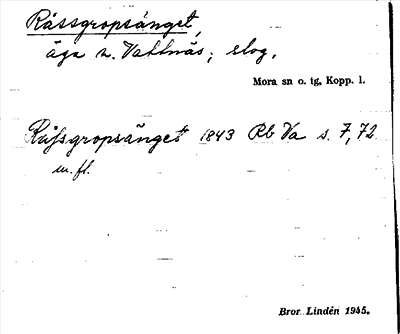 Råssgropsänget,
äga n. Vattnäs; slog.
Mora sn o. tg, Kopp. l.
Råfsgropsänget 1843 Rb Va s. 7, 72
m. fl.
Bror Lindén 1945.